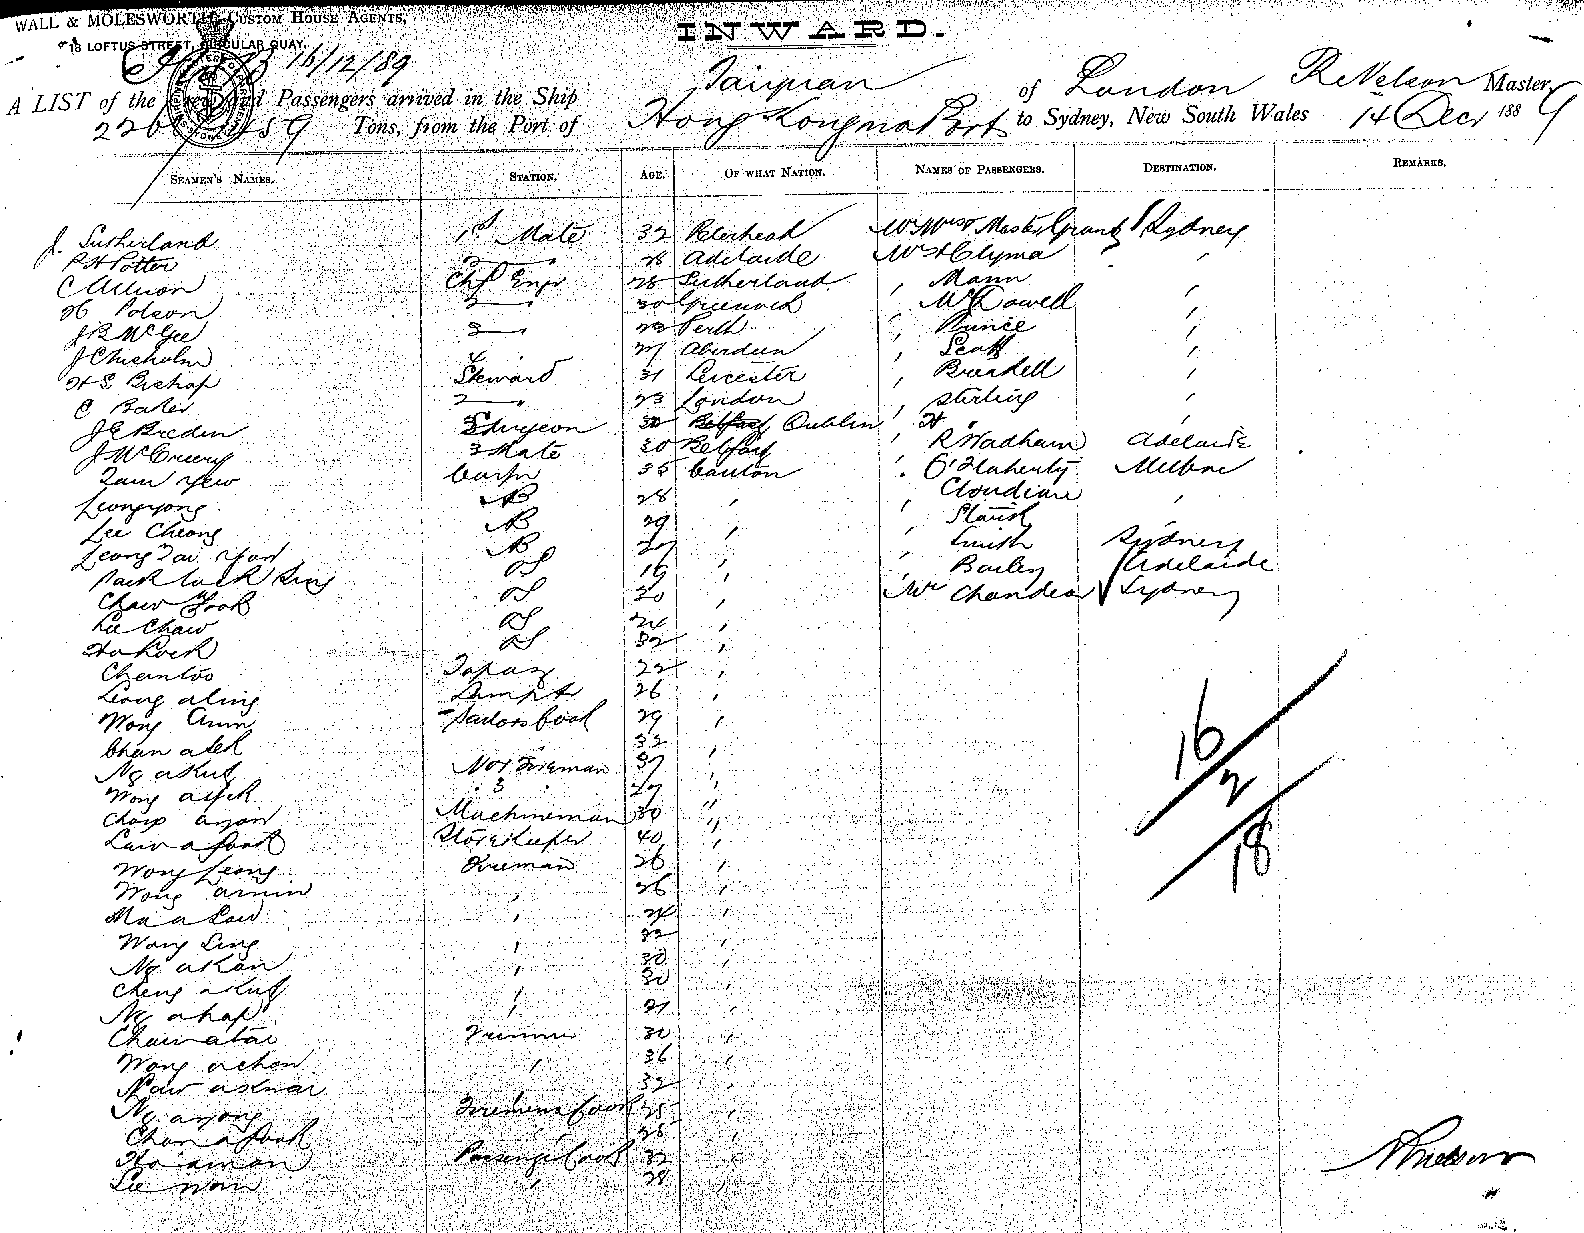 WALL & MOLESWORTH, CUSTOM HOUSE AGENTS,
18 LOFTUS STREET, CIRCULAR QUAY.
INWARD.
16/12/89
A LIST of the Crew and Passengers arrived in the Ship Taiyuan of London R Nelson Master
Tons, from the Port of Hong Kong via Port to Sydney, New South Wales 14 Dec 1889
SEAMEN'S NAMES. STATION. AGE. OF WHAT NATION. NAMES OF PASSENGERS. DESTINATION. REMARKS.
J. Sutherland 1st Mate 32 Peterhead Mr Mrss Master Grant Sydney
P H Potter 2 " 28 Adelaide Mr H Clyma "
C Allison Chf Engr 28 Sutherland " Mann "
H Polson 2 " 30 Greenock " McDowell "
J R McGee 3 " 23 Perth " Prince "
J Chisholm 4 27 Aberdeen " Scott "
H S Bishop Steward 31 Leicester " Brundell "
C Baker 2 " 23 London " Stirling "
J E Breden Surgeon 30 Dublin " H "
J McCreery 3 Mate 30 Belfast " R Wadham Adelaide
Yew Carpr 35 Canton " O'Flaherty Melbne
Leongyong AB 28 " Cloudian "
Lee Cheong AB 29 "
Leong Tai Yon AB 27 " " Smith Sydney
OS 19 " " Bailey Adelaide
Chaw Fook OS 20 " Mr Chandler Sydney
Lee Chaw OS 24 "
Ho Kock OS 32 "
Chantoo Topaz 22 "
Leong aling Lampt 26 "
Wong Amin Sailors Cook 29 "
Chan atek 32 "
Ng akut No 1 Fireman 37 "
Wong 3 " 27 "
ayon Machineman 30 "
Law a fook Storekeeper 40 "
Wong Leong Fireman 26 "
Wong amun " 26 "
Ma a Law " 24 "
Wong Ling " 32 "
Ng akan " 30 "
Cheng akut " 30 "
Ng ahap " 21 "
Chan atai Fireman 30 "
Wong achon " 36 "
32
Ng ayong Firemens Cook 28 "
Chan a fook " 28 "
Ho aman Passengers Cook 32 "
Lee " 28 "
16
2
18
R Nelson